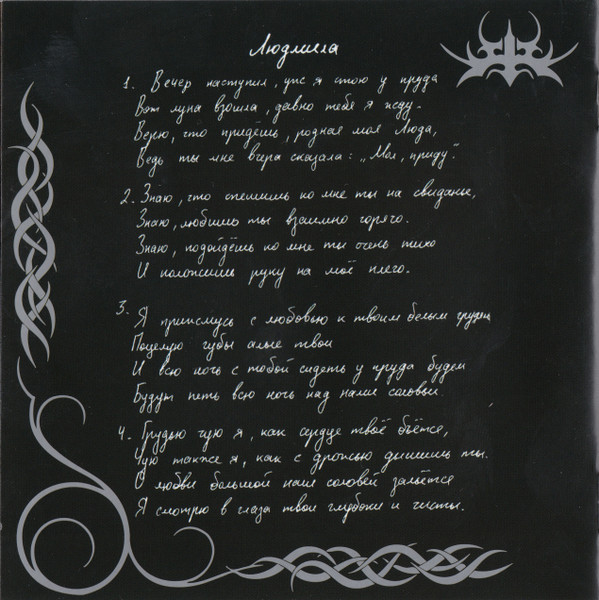 Людмила
1. Вечер наступил, уж я стою у пруда
Вот луна взошла, давно тебя я жду.
Верю, что придёшь, родная моя Люда,
Ведь ты мне вчера сказала: „Мол, приду".
2. Знаю, что спешишь ко мне ты на свиданье,
Знаю, любишь ты взаимно горячо.
Знаю, подойдёшь ко мне ты очень тихо
И положишь руку на моё плечо.
3. Я прижмусь с любовью к твоим белым грудям
Поцелую губы алые твои
И всю ночь с тобой сидеть у пруда будем
Будут петь всю ночь над нами соловьи.
4. Грудью чую я, как сердце твоё бьётся,
Чую также я, как с дрожью дышишь ты.
О любви большой нам соловей зальётся
Я смотрю в глаза твои глубоки и чисты.